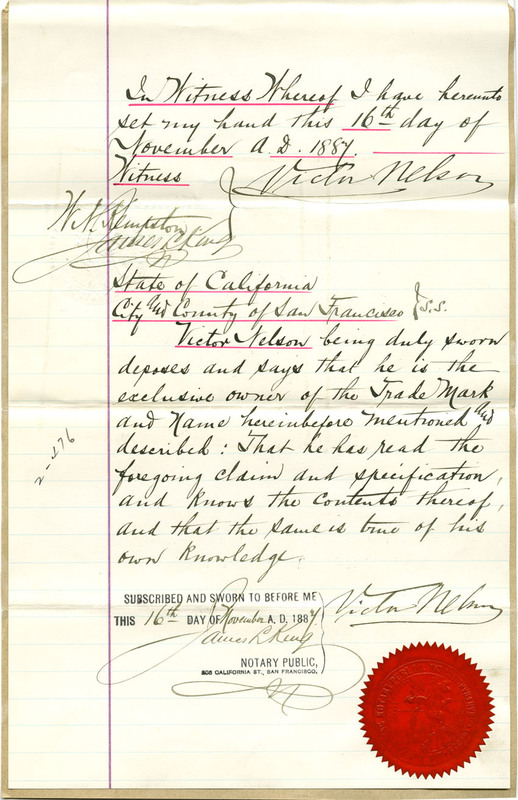 In Witness Whereof I have hereunto
set my hand this 16th day of
November A.D. 1887.
Witness Victor Nelson
W. N. Kempston
James L. King
State of California
City and County of San Francisco } S.S.
Victor Nelson being duly sworn
deposes and says that he is the
exclusive owner of the Trade Mark
and Name hereinbefore mentioned and
described: That he has read the
foregoing claim and specification,
and knows the contents thereof,
and that the same is true of his
own knowledge.
2-276
SUBSCRIBED AND SWORN TO BEFORE ME
THIS 16th DAY OF November A. D. 1887.
Victor Nelson
James L. King
NOTARY PUBLIC,
308 CALIFORNIA ST., SAN FRANCISCO.